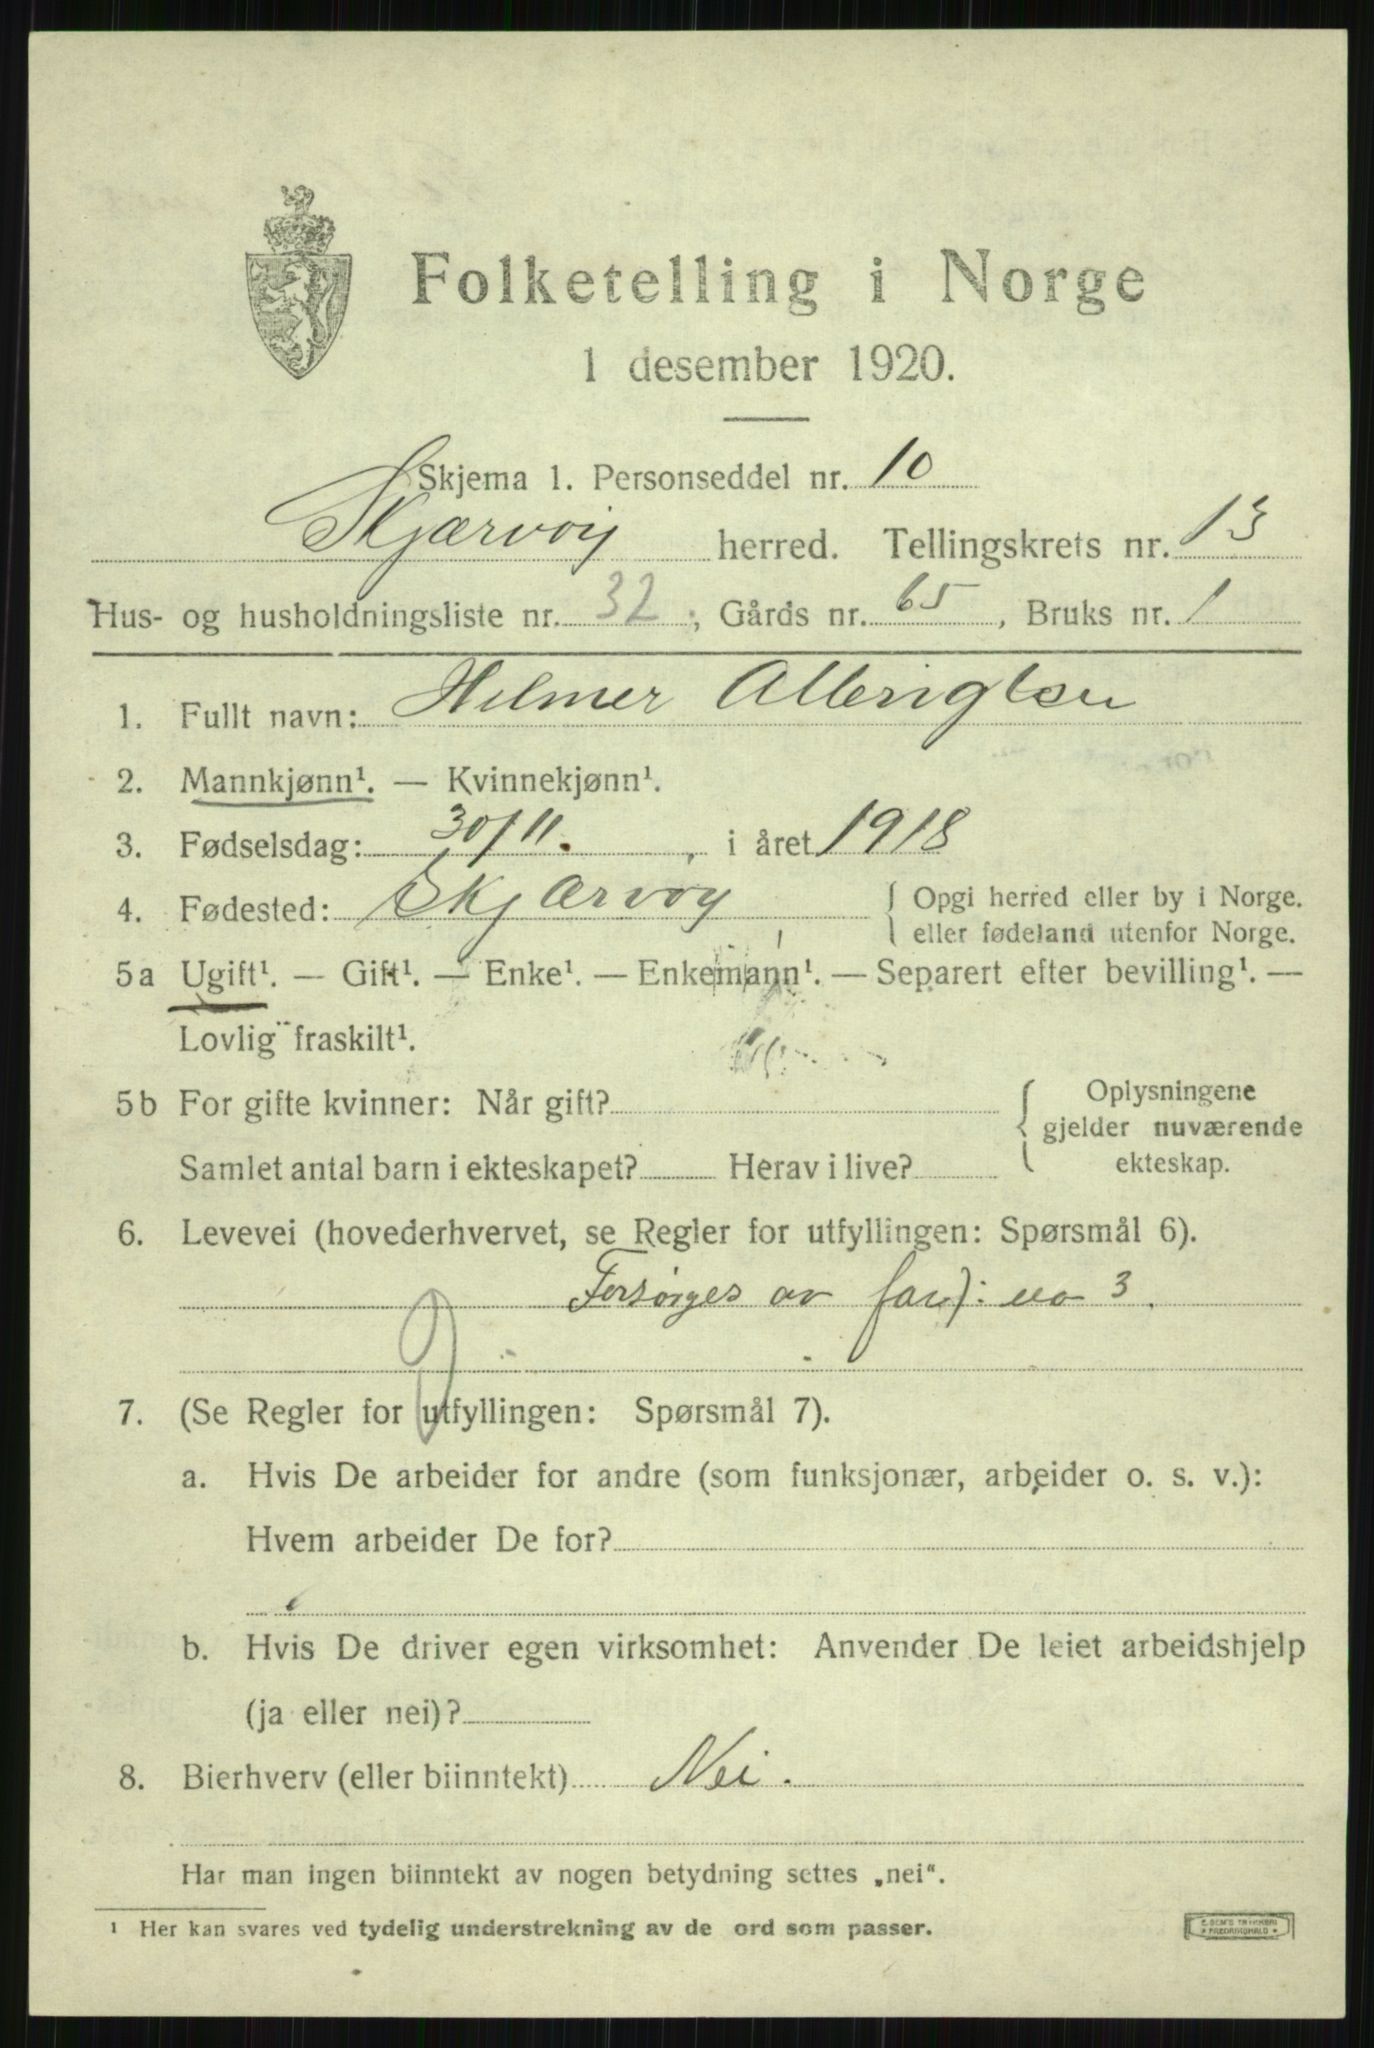 Folketelling i Norge
1 desember 1920.
Skjema 1. Personseddel nr. 10
Skjærvøy herred. Tellingskrets nr. 13
Hus- og husholdningsliste nr. 32, Gårds nr. 65, Bruks nr. 1
1. Fullt navn: Hilmer
2. Mannkjønn¹. — Kvinnekjønn¹.
3. Fødselsdag: 30/11. , i året 1918
4. Fødested: Skjærvøy { Opgi herred eller by i Norge.
eller fødeland utenfor Norge.
5a Ugift¹. — Gift¹. — Enke¹. — Enkemann¹. — Separert efter bevilling¹. —
Lovlig fraskilt¹.
5b For gifte kvinner: Når gift? { Oplysningene
gjelder nuværende
Samlet antal barn i ekteskapet? Herav i live? ekteskap.
6. Levevei (hovederhvervet, se Regler for utfyllingen: Spørsmål 6).
Forsørges av far): no 3.
7. (Se Regler for utfyllingen: Spørsmål 7).
a. Hvis De arbeider for andre (som funksjonær, arbeider o. s. v.):
Hvem arbeider De for?
b. Hvis De driver egen virksomhet: Anvender De leiet arbeidshjelp
(ja eller nei)?
8. Bierhverv (eller biinntekt) Nei.
Har man ingen biinntekt av nogen betydning settes „nei“.
¹ Her kan svares ved tydelig understrekning av de ord som passer.